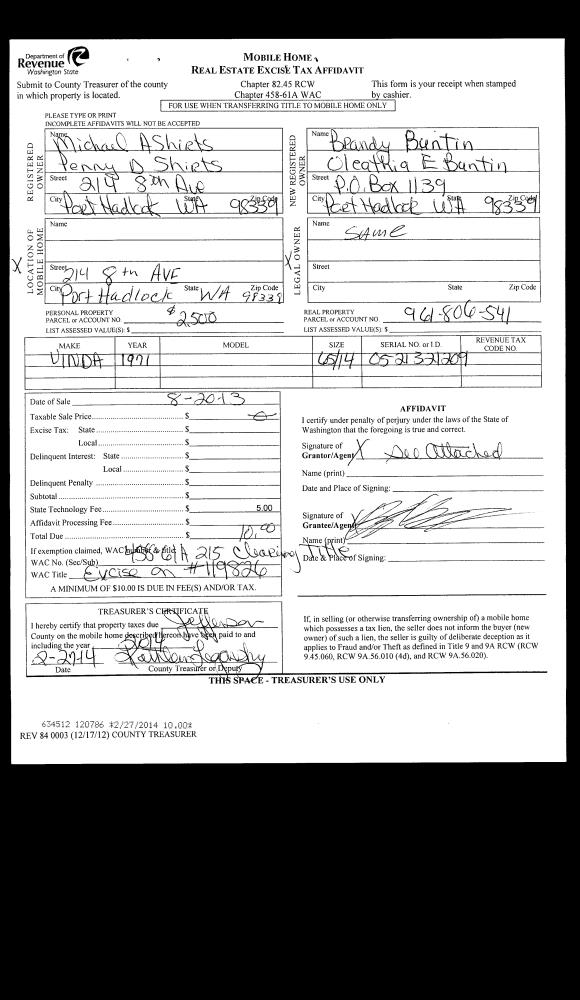 Department of
Revenue
Washington State
MOBILE HOME
REAL ESTATE EXCISE TAX AFFIDAVIT
Submit to County Treasurer of the county
in which property is located.
Chapter 82.45 RCW
Chapter 458-61A WAC
This form is your receipt when stamped
by cashier.
FOR USE WHEN TRANSFERRING TITLE TO MOBILE HOME ONLY
PLEASE TYPE OR PRINT
INCOMPLETE AFFIDAVITS WILL NOT BE ACCEPTED
REGISTERED OWNER
Name Michael A Shirts
Penny D Shirts
Street 214 8th Ave
City Port Hadlock State WA Zip Code 98339
NEW REGISTERED OWNER
Name Brandy Buntin
Oleathia E Buntin
Street P.O. Box 1139
City Port Hadlock State WA Zip Code 98339
X LOCATION OF MOBILE HOME
Name
Street 214 8th AVE
City Port Hadlock State WA Zip Code 98339
X LEGAL OWNER
Name SAME
Street
City State Zip Code
PERSONAL PROPERTY
PARCEL or ACCOUNT NO. $2,500
LIST ASSESSED VALUE(S): $
REAL PROPERTY
PARCEL or ACCOUNT NO. 961-806-541
LIST ASSESSED VALUE(S): $
MAKE YEAR MODEL SIZE SERIAL NO. or I.D. REVENUE TAX CODE NO.
VINDA 1971 65/14
Date of Sale 8-2013
Taxable Sale Price $ 0
Excise Tax: State $
Local $
Delinquent Interest: State $
Local $
Delinquent Penalty $
Subtotal $
State Technology Fee $ 5.00
Affidavit Processing Fee $
Total Due $ 10.00
If exemption claimed, WAC number & title:
WAC No. (Sec/Sub) 458 61A 215 Clearing Title
WAC Title Excise on #119826
A MINIMUM OF $10.00 IS DUE IN FEE(S) AND/OR TAX.
AFFIDAVIT
I certify under penalty of perjury under the laws of the State of
Washington that the foregoing is true and correct.
Signature of
Grantor/Agent X See Attached
Name (print)
Date and Place of Signing:
Signature of
Grantee/Agent
Name (print)
Date & Place of Signing:
TREASURER'S CERTIFICATE
I hereby certify that property taxes due Jefferson
County on the mobile home described hereon have been paid to and
including the year 2014
2-27-14
Date County Treasurer or Deputy
If, in selling (or otherwise transferring ownership of) a mobile home
which possesses a tax lien, the seller does not inform the buyer (new
owner) of such a lien, the seller is guilty of deliberate deception as it
applies to Fraud and/or Theft as defined in Title 9 and 9A RCW (RCW
9.45.060, RCW 9A.56.010 (4d), and RCW 9A.56.020).
THIS SPACE - TREASURER'S USE ONLY
634512 120786 2/27/2014 10.00
REV 84 0003 (12/17/12) COUNTY TREASURER